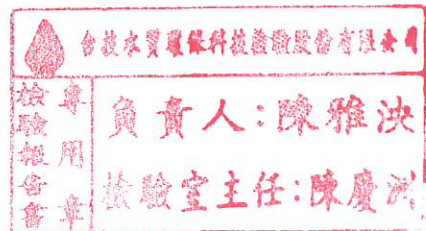 台技水質環保科技檢驗股份有限公司
檢驗報告書
專用章
負責人:陳雅泱
檢驗室主任:陳慶